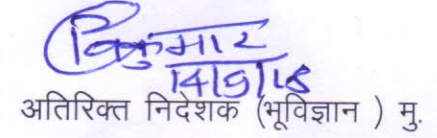 14/9/18
अतिरिक्त निदेशक (भूविज्ञान ) मु.